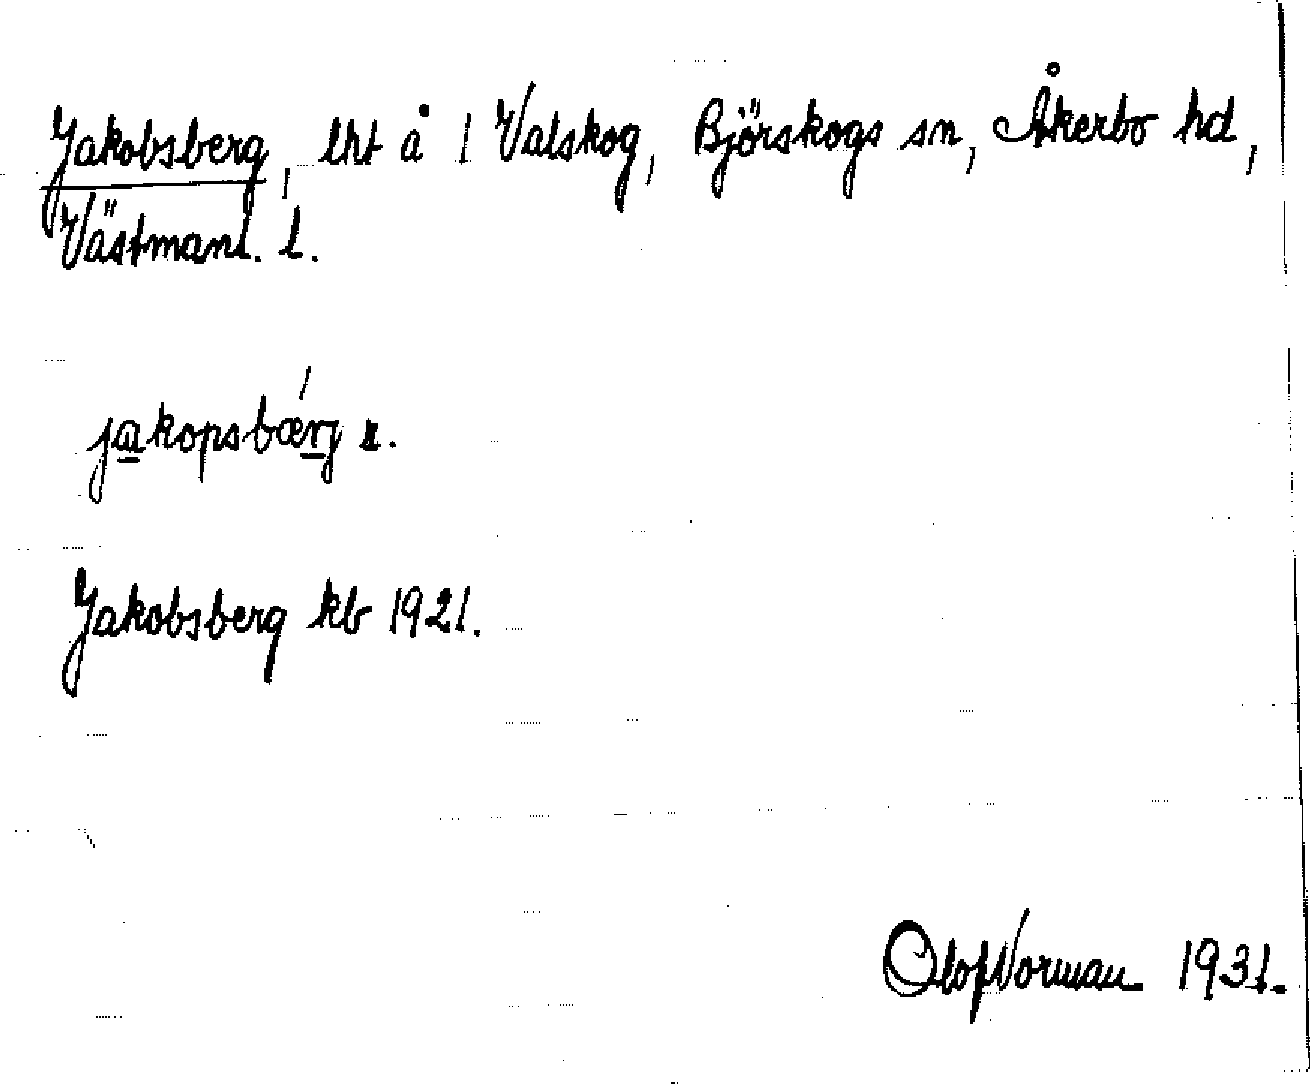 Jakobsberg, lht å 1 Valskog, Björskogs sn, Åkerbo hd,
Västmanl. l.
jakopsbærj
Jakobsberg kb 1921.
Olof Norman 1931.